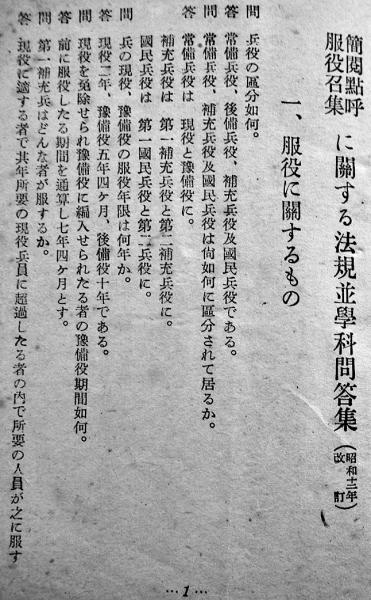 簡閱點呼
服役召集
に關する法規並學科問答集
(昭和十二年
改訂)
一、服役に關するもの
問 兵役の區分如何。
答 常備兵役、後備兵役、補充兵役及國民兵役である。
問 常備兵役、補充兵役及國民兵役は尙如何に區分されて居るか。
答 常備兵役は 現役と豫備役に。
補充兵役は 第一補充兵役と第二補充兵役に。
國民兵役は 第一國民兵役と第二兵役に。
問 兵の現役、豫備役の服役年限は何年か。
答 現役二年、豫備役五年四ヶ月、後備役十年である。
問 現役を免除せられ豫備役に編入せられたる者の豫備役期間如何。
答 前に服役したる期間を通算し七年四ヶ月とす。
問 第一補充兵はどんな者が服するか。
答 現役に適する者で其年所要の現役兵員に超過したる者の內で所要の人員が之に服す
…1…